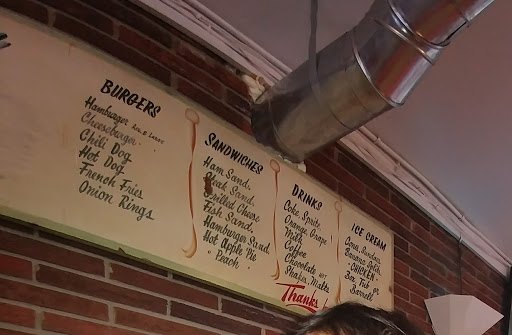 BURGERS
Hamburger Reg. & Large
Cheeseburger
Chili Dog
Hot Dog
French Fries
Onion Rings
SANDWICHES
Ham Sand.
Steak Sand.
Grilled Cheese
Fish Sand.
Hamburger Sand.
Hot Apple Pie
" Peach "
DRINKS
Coke Sprite
Orange Grape
Milk
Coffee
Chocolate
Shakes, Malts
Thanks!
ICE CREAM
Cones, Sundaes
Banana Split
"CHICKEN"
Box, Tub or
Barrell